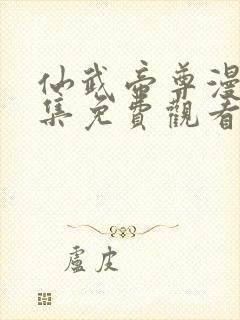 仙武帝尊漫
集免費觀看
盧皮